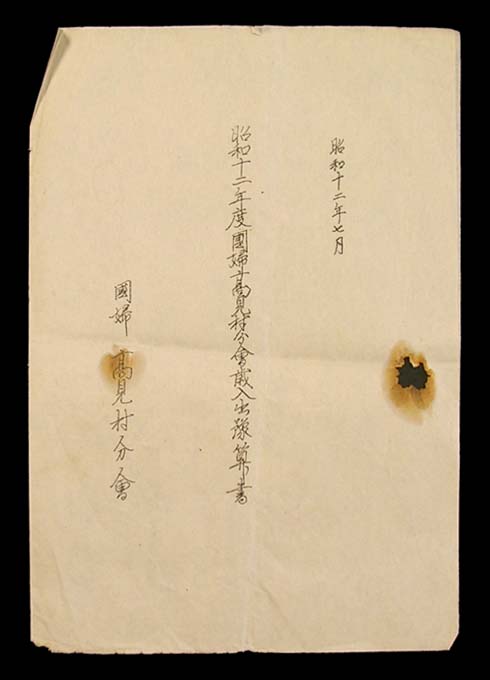 昭和十二年七月
昭和十二年度國婦高見村分會歳入出豫算書
國婦高見村分會